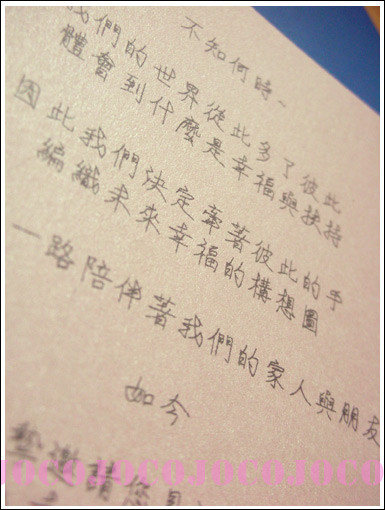 不知何時~
我們的世界從此多了彼此
體會到什麼是幸福與扶持
因此我們決定牽著彼此的手
編織未來幸福的構想圖
一路陪伴著我們的家人與朋友
如今
邀請您
JOCOJOCOJOCOJOCOJOCO